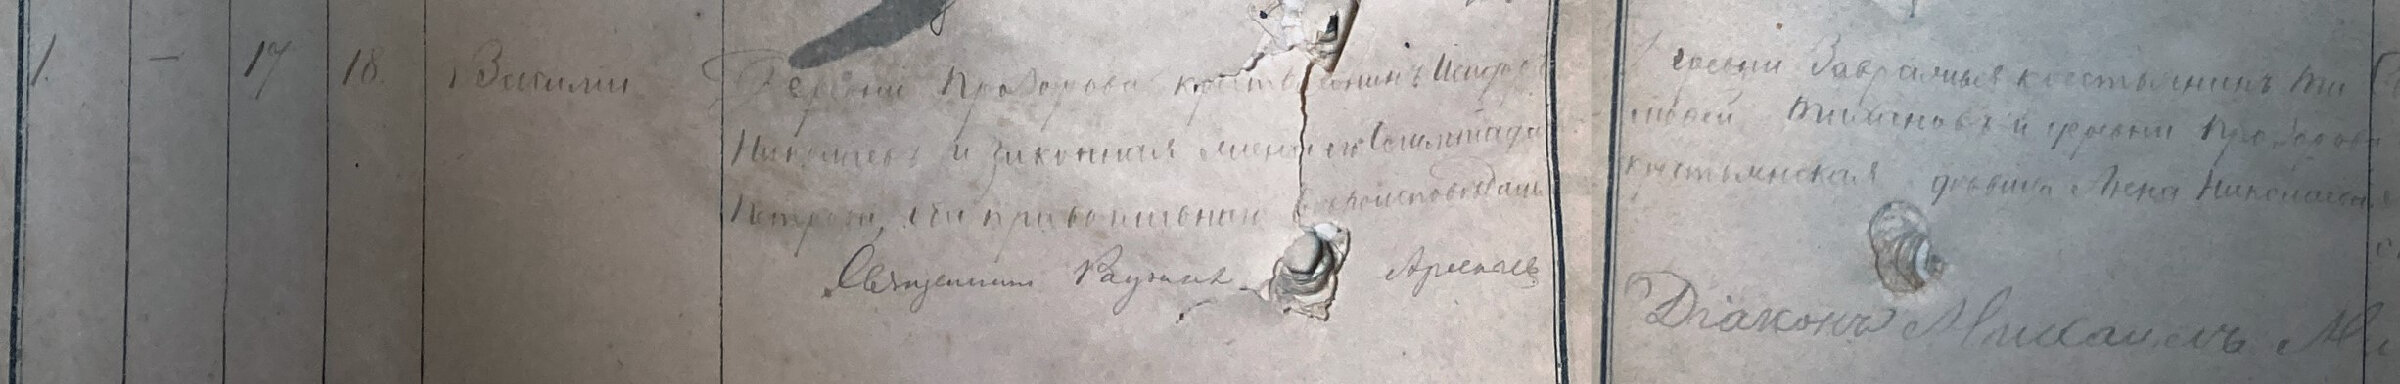 1. — 17 18. Василий
Деревни Прозорова крестьянинъ Исидоръ
Николаевъ и законная жена его Олимпиада
Петрова, оба православнаго вероисповеданія
Священникъ Арсеньев
Деревни крестьянинъ Ти
мофей и деревни Прозорова
крестьянская девица Анна Николаева
Діаконъ Михаилъ